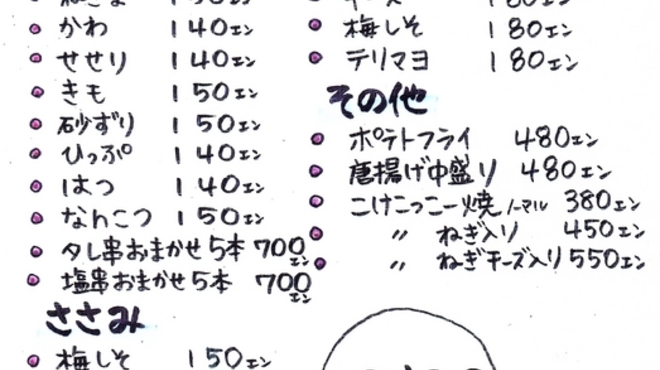 かわ 140エン
せせり 140エン
きも 150エン
砂ずり 150エン
ひっぷ 140エン
はつ 140エン
なんこつ 150エン
タレ串おまかせ5本 700エン
塩串おまかせ5本 700エン
ささみ
梅しそ 150エン
180
梅しそ 180エン
テリマヨ 180エン
その他
ポテトフライ 480エン
唐揚げ中盛り 480エン
こけこっこー焼ノーマル 380エン
〃 ねぎ入り 450エン
〃 ねぎチーズ入り 550エン